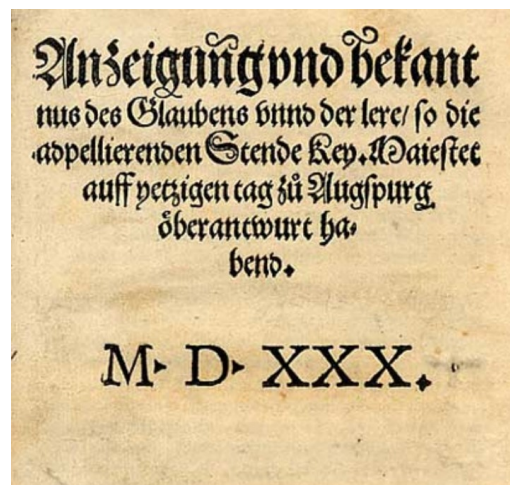 Anzeigung vnd bekant
nus des Glaubens vnnd der lere/ so die
adpellierenden Stende Key. Maiestet
auff yetzigen tag zů Augspurg
öberantwurt ha⸗
bend.
M. D. XXX.